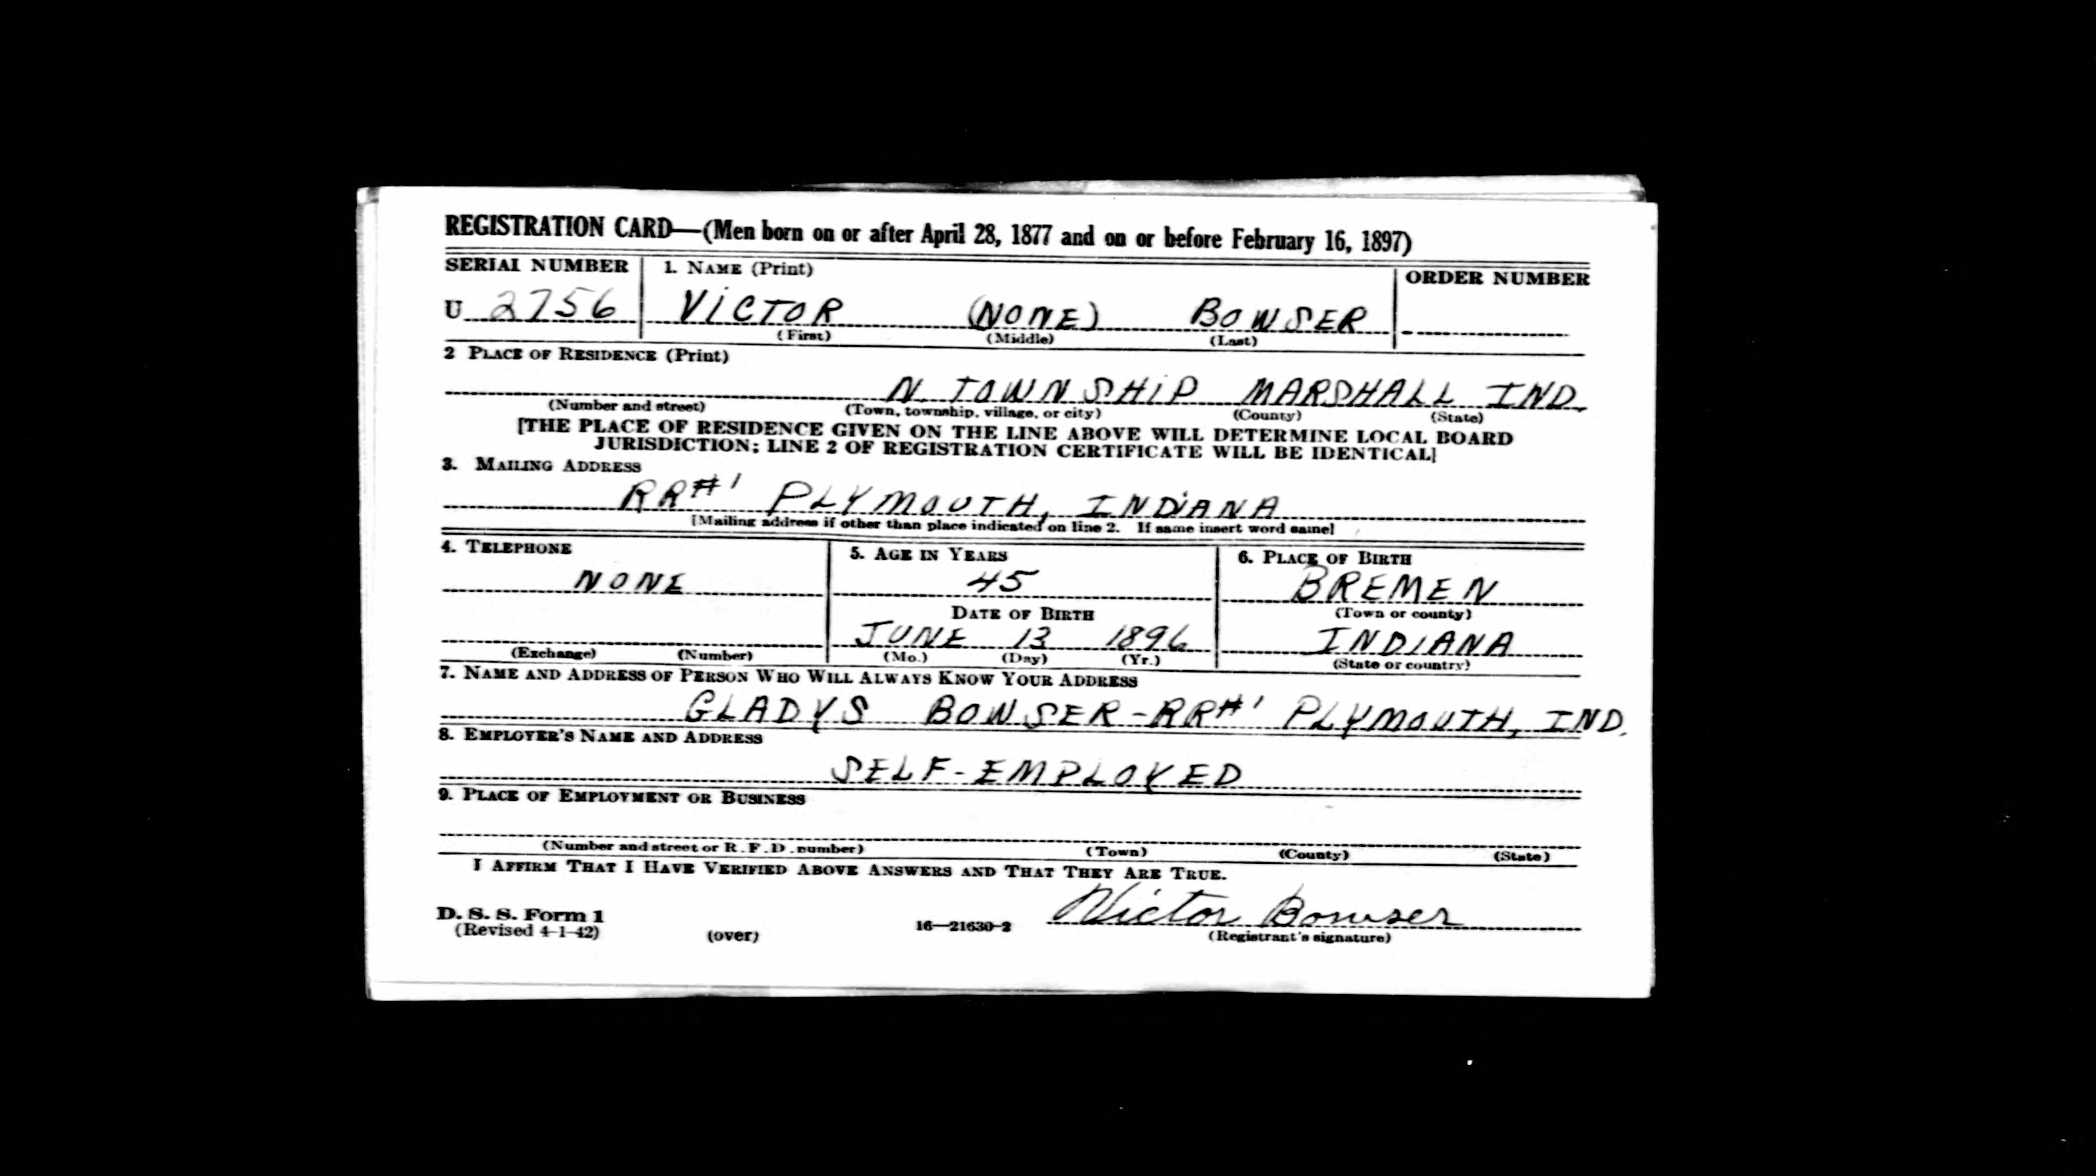 REGISTRATION CARD—(Men born on or after April 28, 1877 and on or before February 16, 1897)
SERIAL NUMBER 1. NAME (Print) ORDER NUMBER
U 2756 VICTOR (NONE) BOWSER
(First) (Middle) (Last)
2 PLACE OF RESIDENCE (Print)
N. TOWNSHIP MARSHALL IND.
(Number and street) (Town, township, village, or city) (County) (State)
[THE PLACE OF RESIDENCE GIVEN ON THE LINE ABOVE WILL DETERMINE LOCAL BOARD
JURISDICTION; LINE 2 OF REGISTRATION CERTIFICATE WILL BE IDENTICAL]
3. MAILING ADDRESS
RR#1 PLYMOUTH, INDIANA
[Mailing address if other than place indicated on line 2. If same insert word same]
4. TELEPHONE 5. AGE IN YEARS 6. PLACE OF BIRTH
NONE 45 BREMEN
DATE OF BIRTH (Town or county)
JUNE 13 1896 INDIANA
(Exchange) (Number) (Mo.) (Day) (Yr.) (State or country)
7. NAME AND ADDRESS OF PERSON WHO WILL ALWAYS KNOW YOUR ADDRESS
GLADYS BOWSER-RR#1 PLYMOUTH, IND.
8. EMPLOYER'S NAME AND ADDRESS
SELF-EMPLOYED
9. PLACE OF EMPLOYMENT OR BUSINESS
(Number and street or R. F. D. number) (Town) (County) (State)
I AFFIRM THAT I HAVE VERIFIED ABOVE ANSWERS AND THAT THEY ARE TRUE.
D. S. S. Form 1 Victor Bowser
(Revised 4-1-42) (over) 16—21630-2 (Registrant's signature)